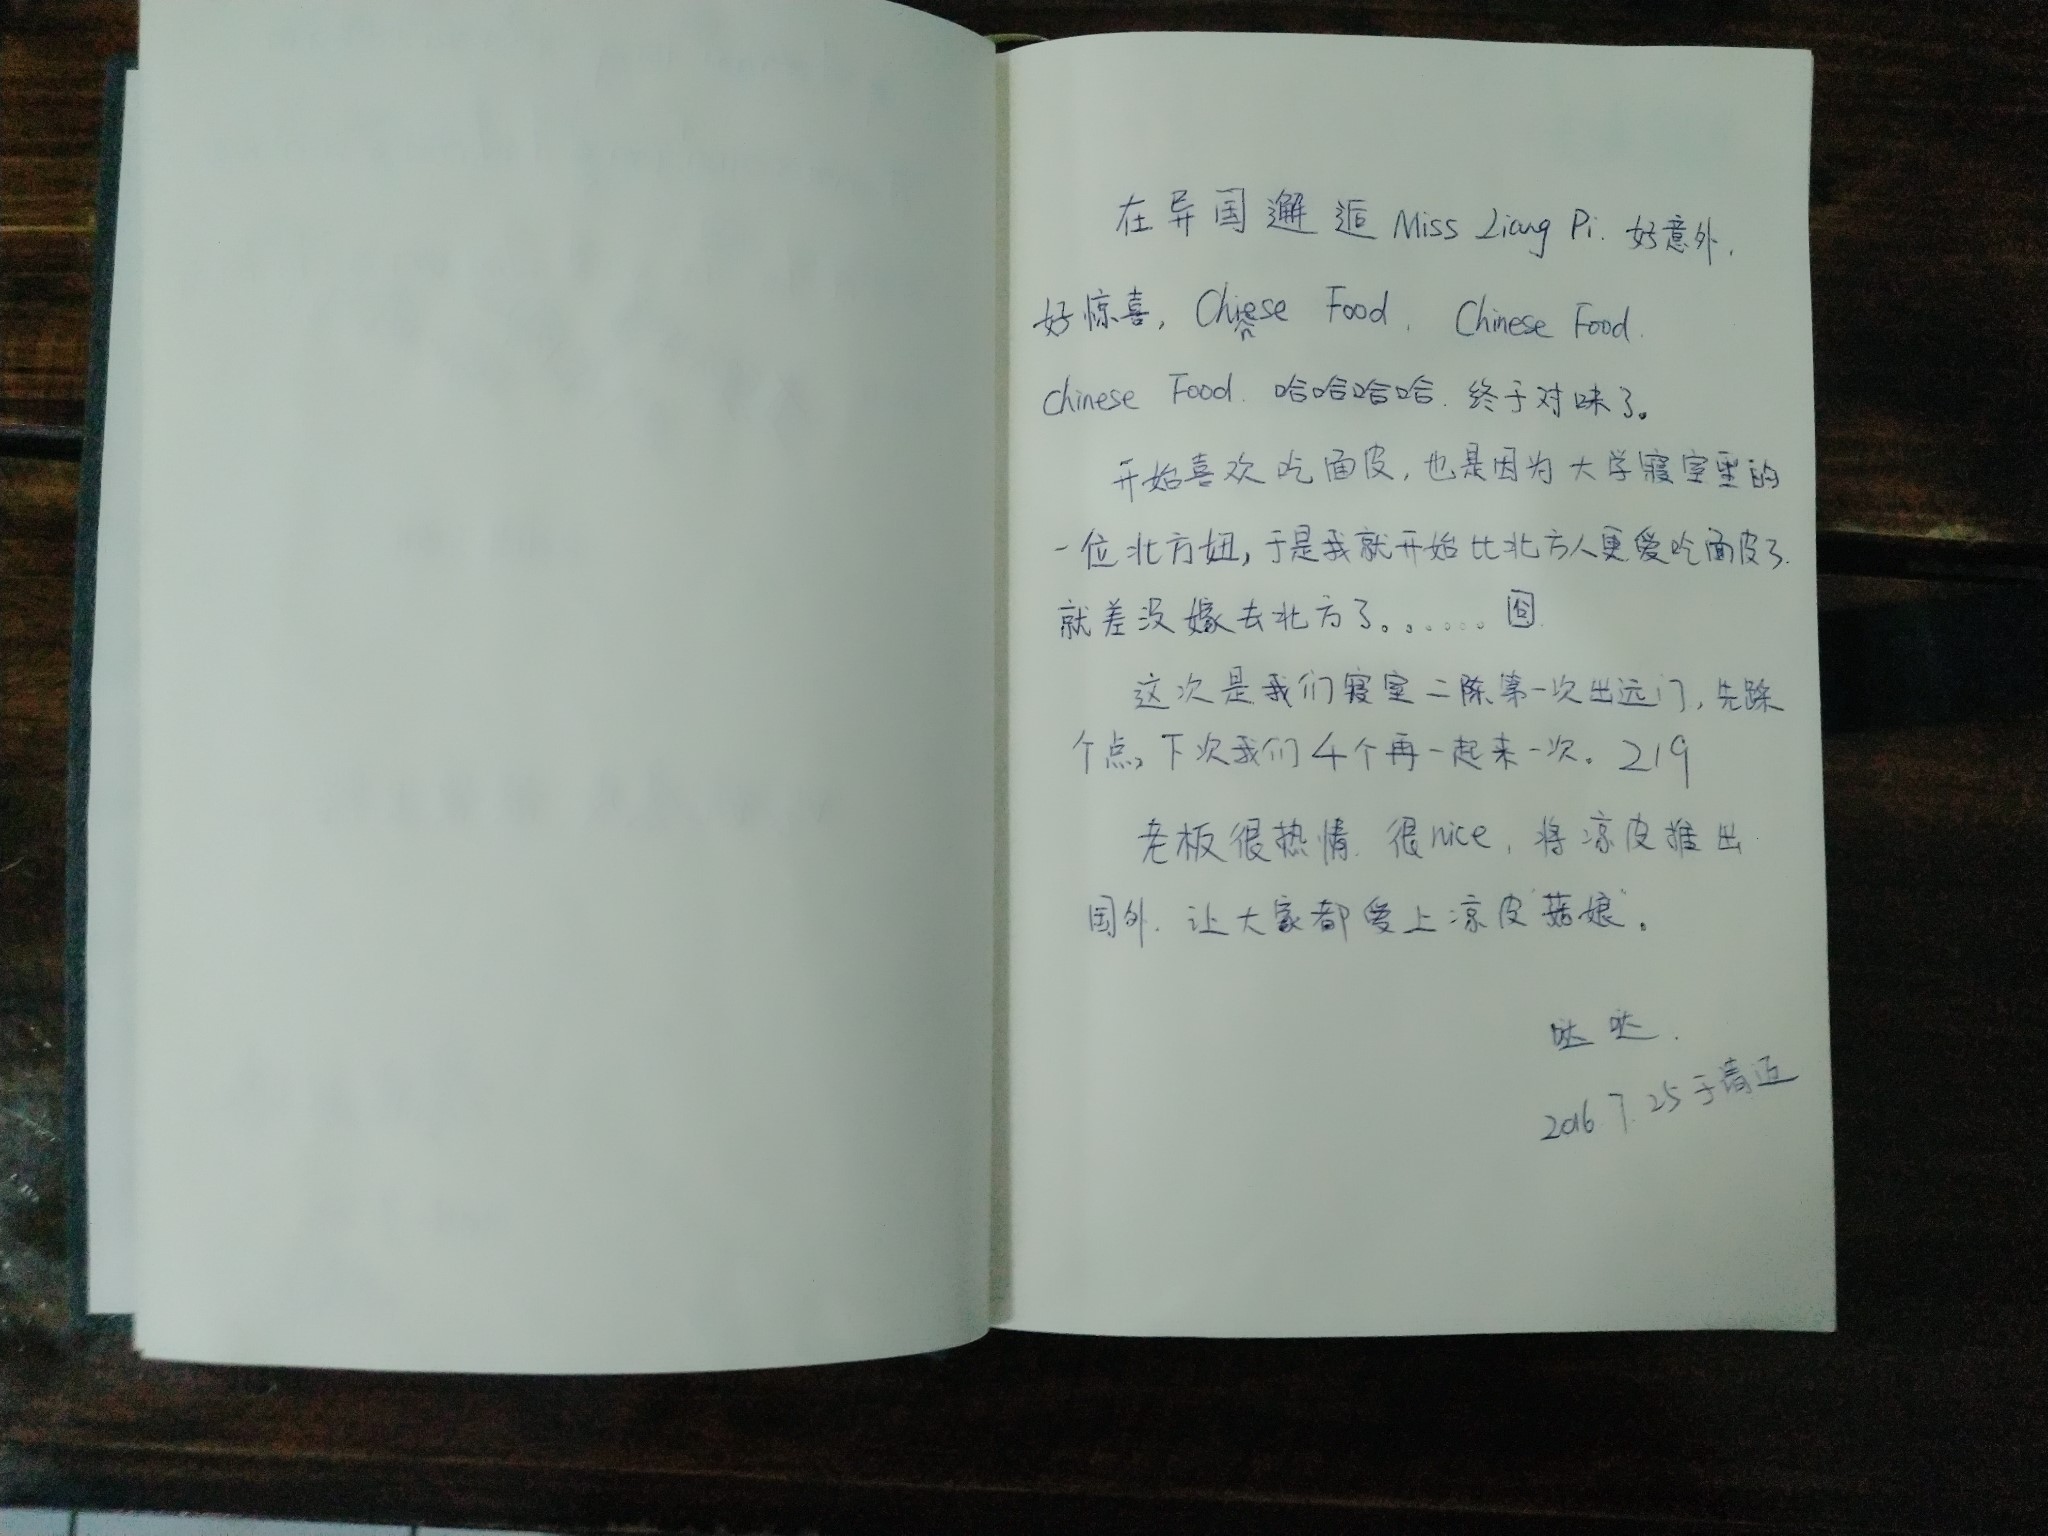 在异国邂逅 Miss Liang Pi. 好意外,
好惊喜, Chinese Food. Chinese Food.
Chinese Food. 哈哈哈哈. 终于对味了。
开始喜欢吃面皮, 也是因为大学寝室里的
一位北方妞, 于是我就开始比北方人更爱吃面皮了.
就差没嫁去北方了。。。。。。囧.
这次是我们寝室二陈第一次出远门, 先踩
个点, 下次我们4个再一起来一次。219
老板很热情. 很nice, 将凉皮推出
国外. 让大家都爱上凉皮"菇娘"。
哒哒.
2016 7.25 于清迈